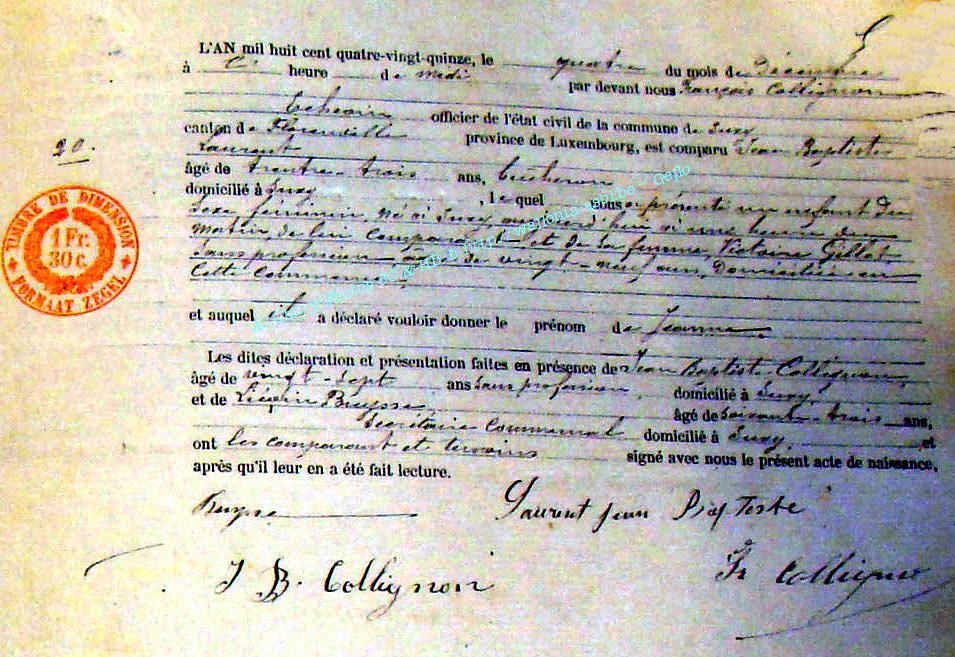 L'AN mil huit cent quatre-vingt-quinze, le quatre du mois de Décembre
à heure de midi par devant nous François Collignon
Echevin officier de l'état civil de la commune de Suxy
canton de Florenville province de Luxembourg, est comparu Jean Baptiste
Laurent
20.
âgé de trente-trois ans, bucheron
domicilié à Suxy, lequel nous a présenté un enfant du
sexe féminin, né à Suxy, aujourd'hui à une heure du
matin, de lui comparant et de sa femme, Victoire Gillet
sans profession, âgée de vingt-neuf ans, domiciliée en
cette commune,
TIMBRE DE DIMENSION
1 Fr.
30 c.
FORMAAT ZEGEL
et auquel il a déclaré vouloir donner le prénom de Jeanne.
Les dites déclaration et présentation faites en présence de Jean Baptiste Collignon,
âgé de vingt-sept ans sans profession, domicilié à Suxy
et de Buysse, âgé de soixante-trois ans,
Secrétaire Communal domicilié à Suxy, et
ont les comparant et témoins signé avec nous le présent acte de naissance,
après qu'il leur en a été fait lecture.
Buysse
Laurent jean Baptiste
J B. Collignon
Fr Collignon